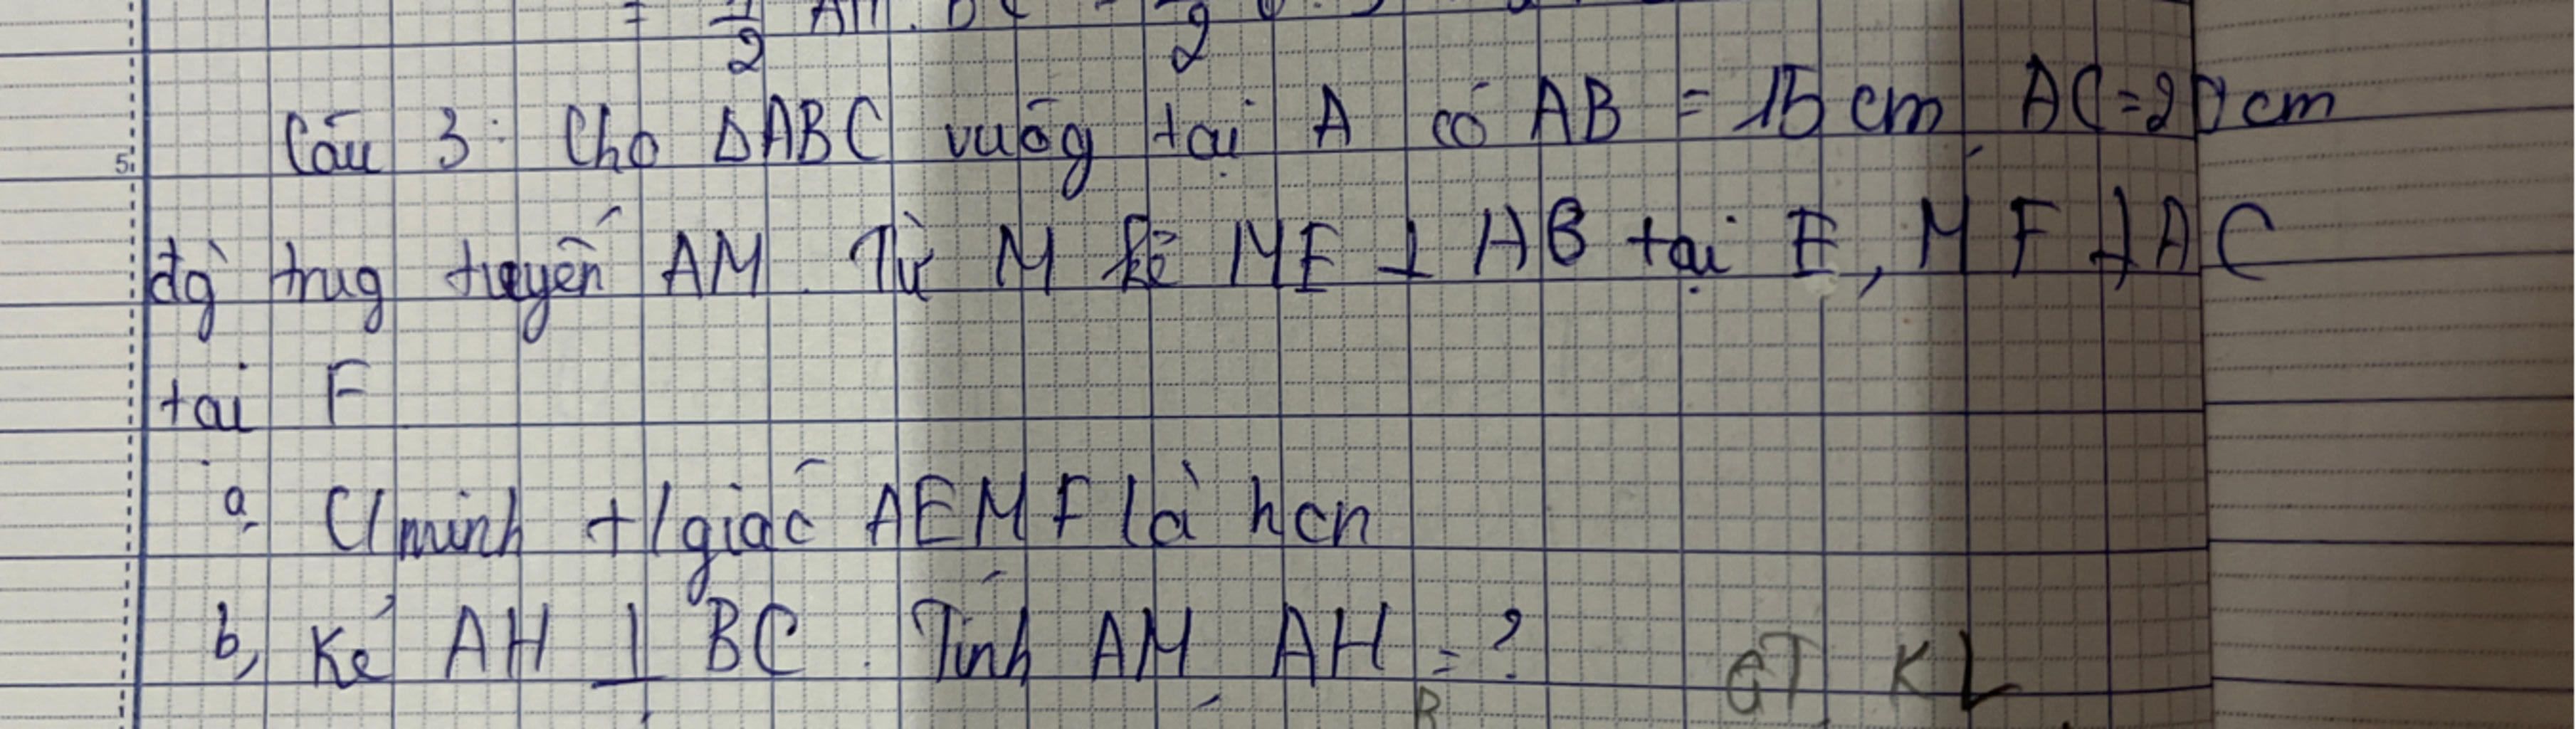 = 1/2 AM. BC
Câu 3: Cho ΔABC vuôg tại A có AB = 15 cm, AC=20cm
đg trug tuyến AM. Từ M kẻ ME ⊥ AB tại E, MF ⊥ AC
tại F
a. C/minh t/giác AEMF là hcn
b, Kẻ AH ⊥ BC. Tính AM, AH = ?
GT KL
B